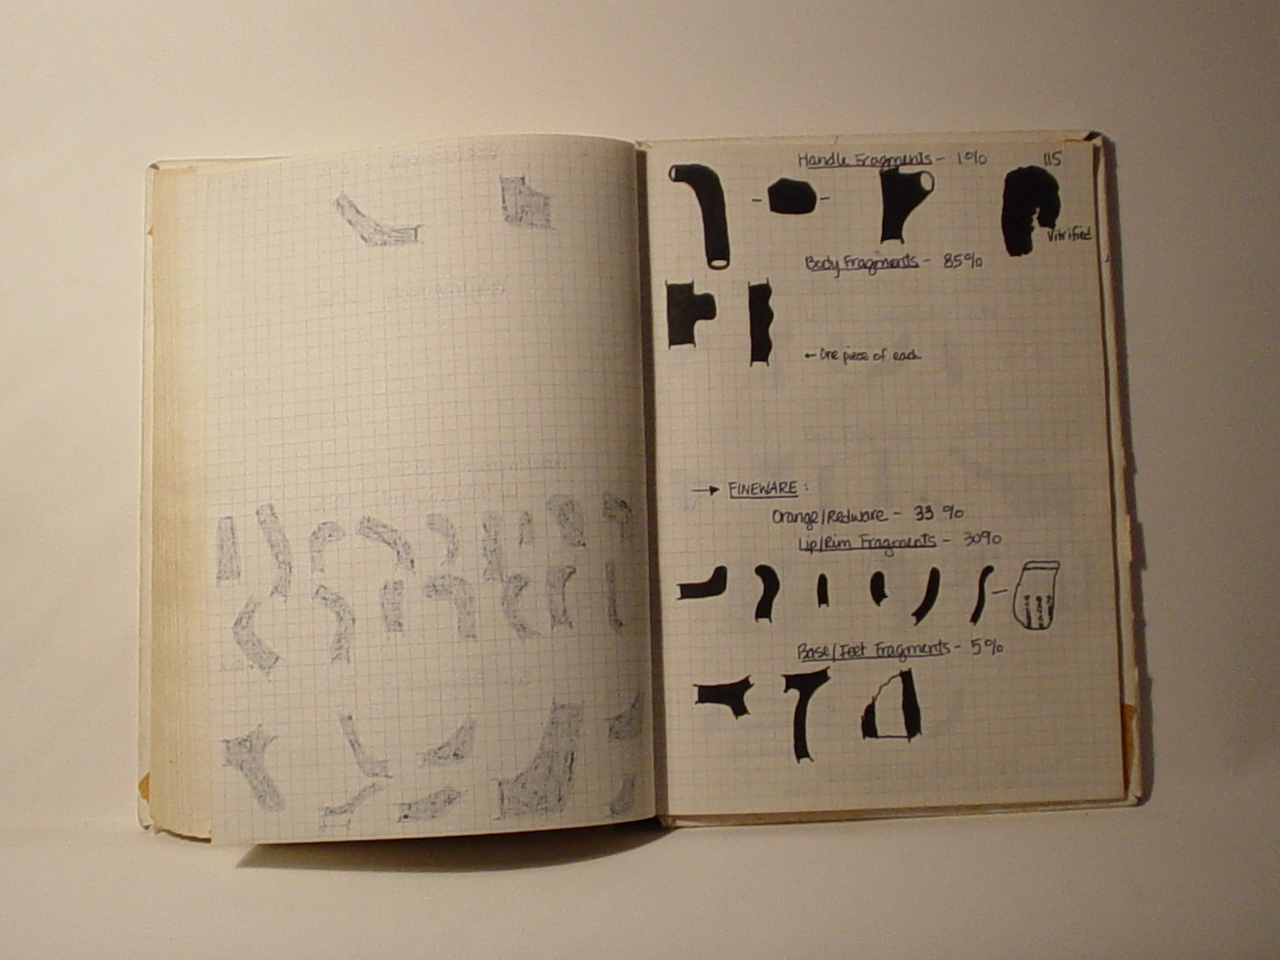 Handle Fragments - 1%
115
Vitrified
Body Fragments - 85%
← One piece of each
→ FINEWARE:
Orange/Redware - 33 %
Lip/Rim Fragments - 30%
Base/Feet Fragments - 5%